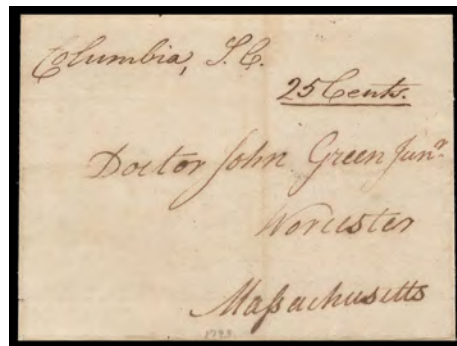 Columbia, S.C.
25 Cents.
Doctor John Green Junr.
Worcester
Maſsachusetts